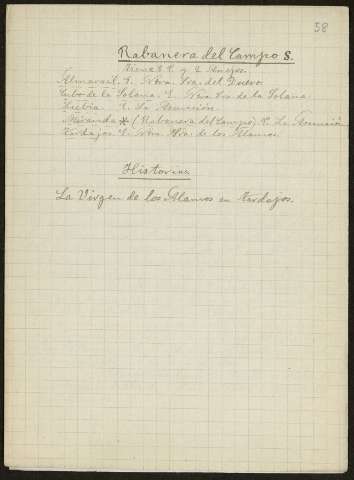 58
Rabanera del Campo S.
Tiene 5 P. y 2 Anejos.
Almarail. P. Ntra. Sra. del Duero.
Cubo de la Solana. P. Ntra Sra de la Solana.
Ituero P. La Asunción
Miranda * (Rabanera del Campo) P. La Asunción
Tardajos P. Ntra. Sra. de los Alamos.
Historias
La Virgen de los Alamos en Tardajos.